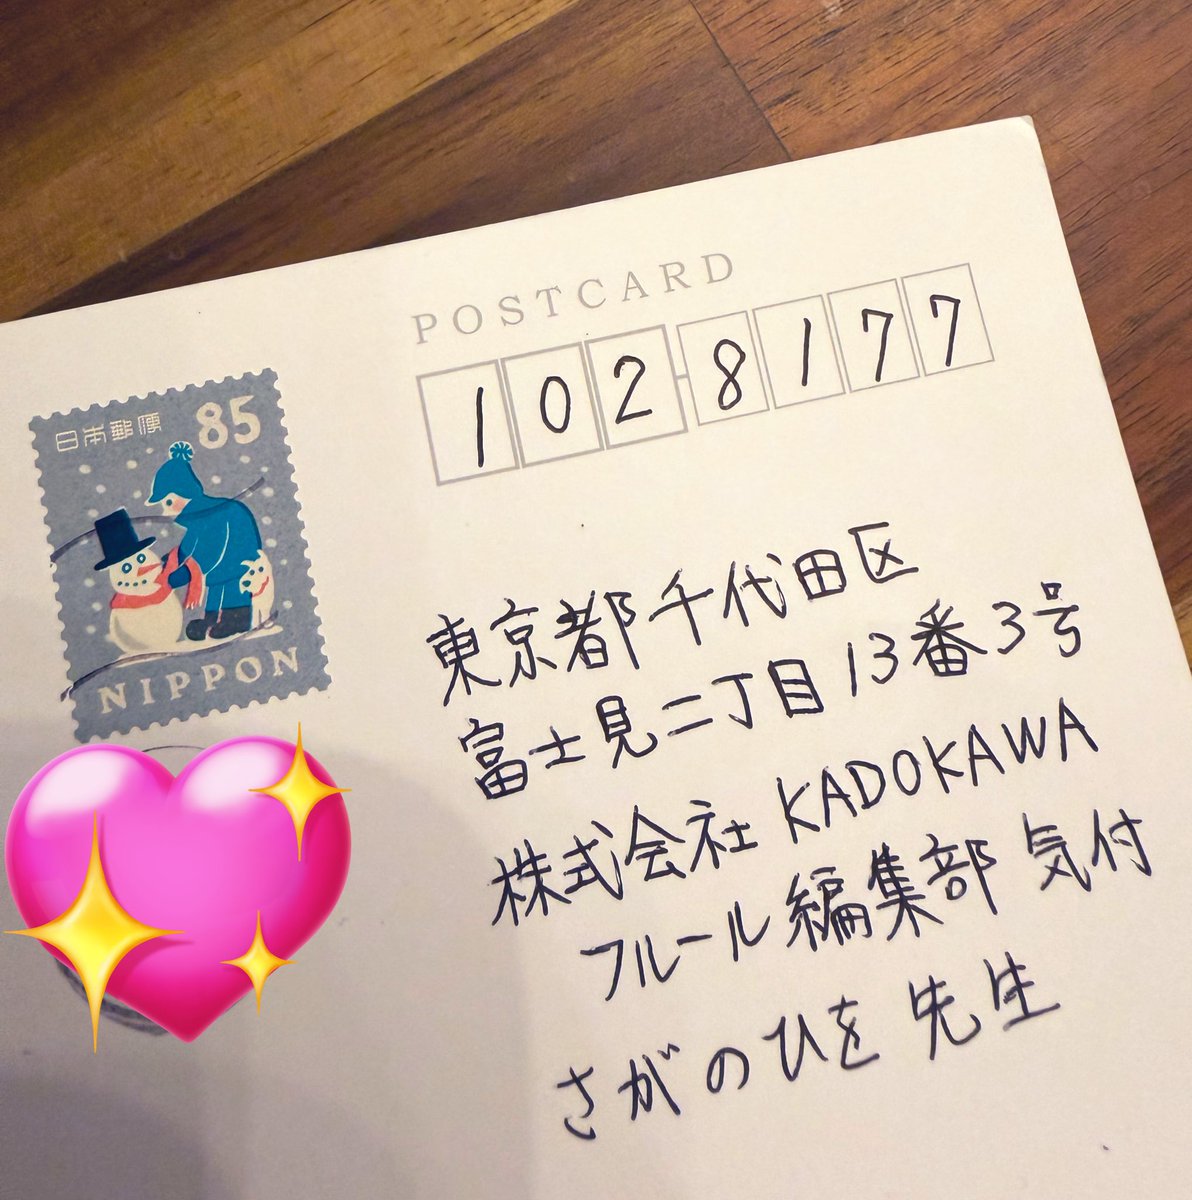 POSTCARD
102-8177
日本郵便 85
NIPPON
東京都千代田区
富士見二丁目13番3号
株式会社KADOKAWA
フルール編集部 気付
さがのひを 先生